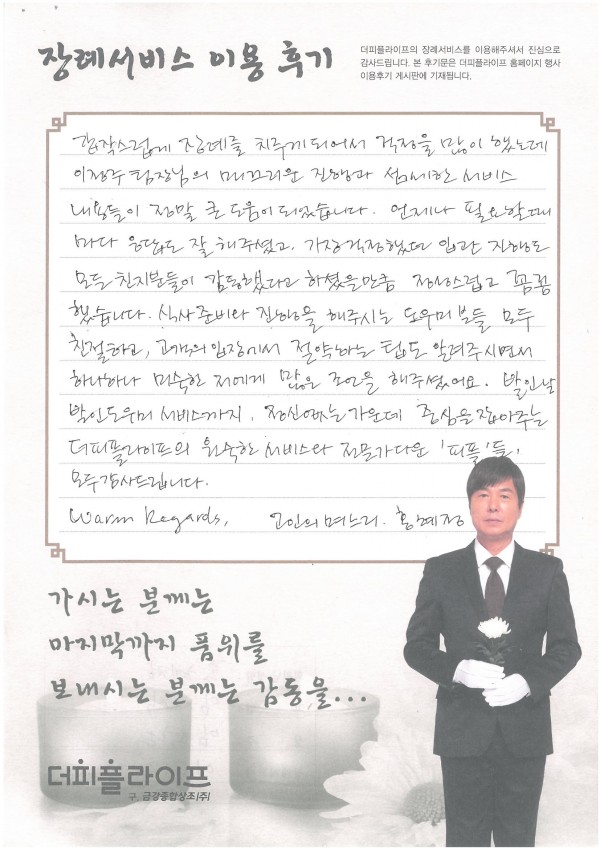 장례서비스 이용 후기
더피플라이프의 장례서비스를 이용해주셔서 진심으로
감사드립니다. 본 후기문은 더피플라이프 홈페이지 행사
이용후기 게시판에 기재됩니다.
갑작스럽게 장례를 치루게 되어서 걱정을 많이 했는데
이장주 팀장님의 매끄러운 진행과 섬세한 서비스
내용들이 정말 큰 도움이 되었습니다. 언제나 필요할때
마다 응답도 잘 해주셨고, 가장 걱정했던 입관 진행도
모든 친지분들이 감동했다고 하셨을만큼 정성스럽고 꼼꼼
했습니다. 식사 준비와 진행을 해주시는 도우미 분들 모두
친절하고, 고객의 입장에서 절약하는 팁도 알려주시면서
하나하나 미숙한 저에게 많은 조언을 해주셨어요. 발인날
발인도우미 서비스까지, 정신없는 가운데 중심을 잡아주는
더피플라이프의 원숙한 서비스와 전문가다운 '피플'들,
모두 감사드립니다.
Warm Regards, 고인의 며느리. 홍혜정
가시는 분께는
마지막까지 품위를
보내시는 분께는 감동을...
더피플라이프
구. 금강종합상조(주)